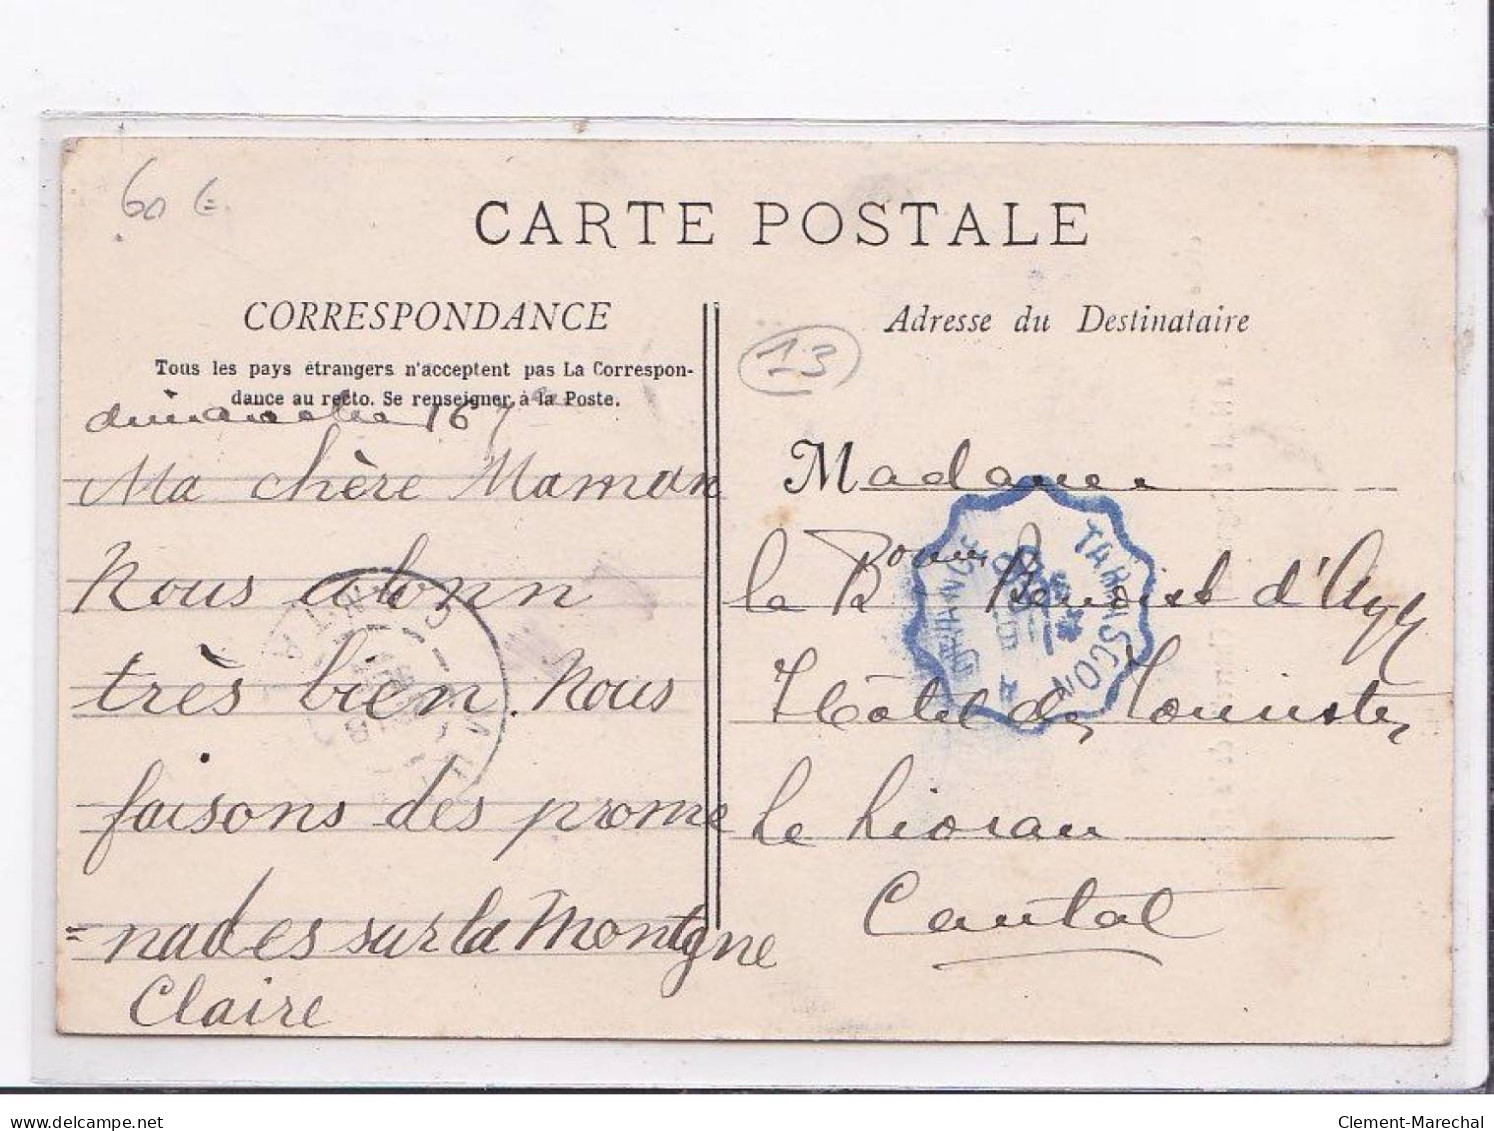 60 €
CARTE POSTALE
CORRESPONDANCE
Tous les pays étrangers n'acceptent pas La Correspon-
dance au recto. Se renseigner à la Poste.
dimanche 16
Ma chère Maman
Nous alonn
très bien. Nous
faisons des prome
= nades sur la Montgne
Claire
Adresse du Destinataire
13
Madame
la Bonne Benoist d'Azy
Hôtel des Touristes
Le Lioran
Cantal
TARASCON
delcampe.net
Clement-Marechal